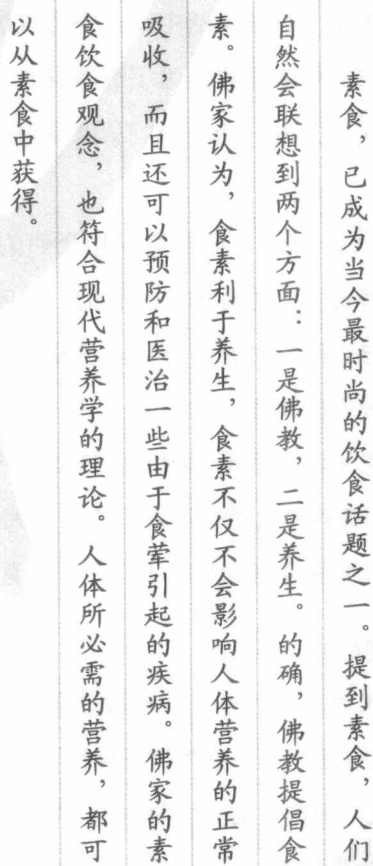 素食，已成为当今最时尚的饮食话题之一。提到素食，人们
自然会联想到两个方面：一是佛教，二是养生。的确，佛教提倡食
素。佛家认为，食素利于养生，食素不仅不会影响人体营养的正常
吸收，而且还可以预防和医治一些由于食荤引起的疾病。佛家的素
食饮食观念，也符合现代营养学的理论。人体所必需的营养，都可
以从素食中获得。